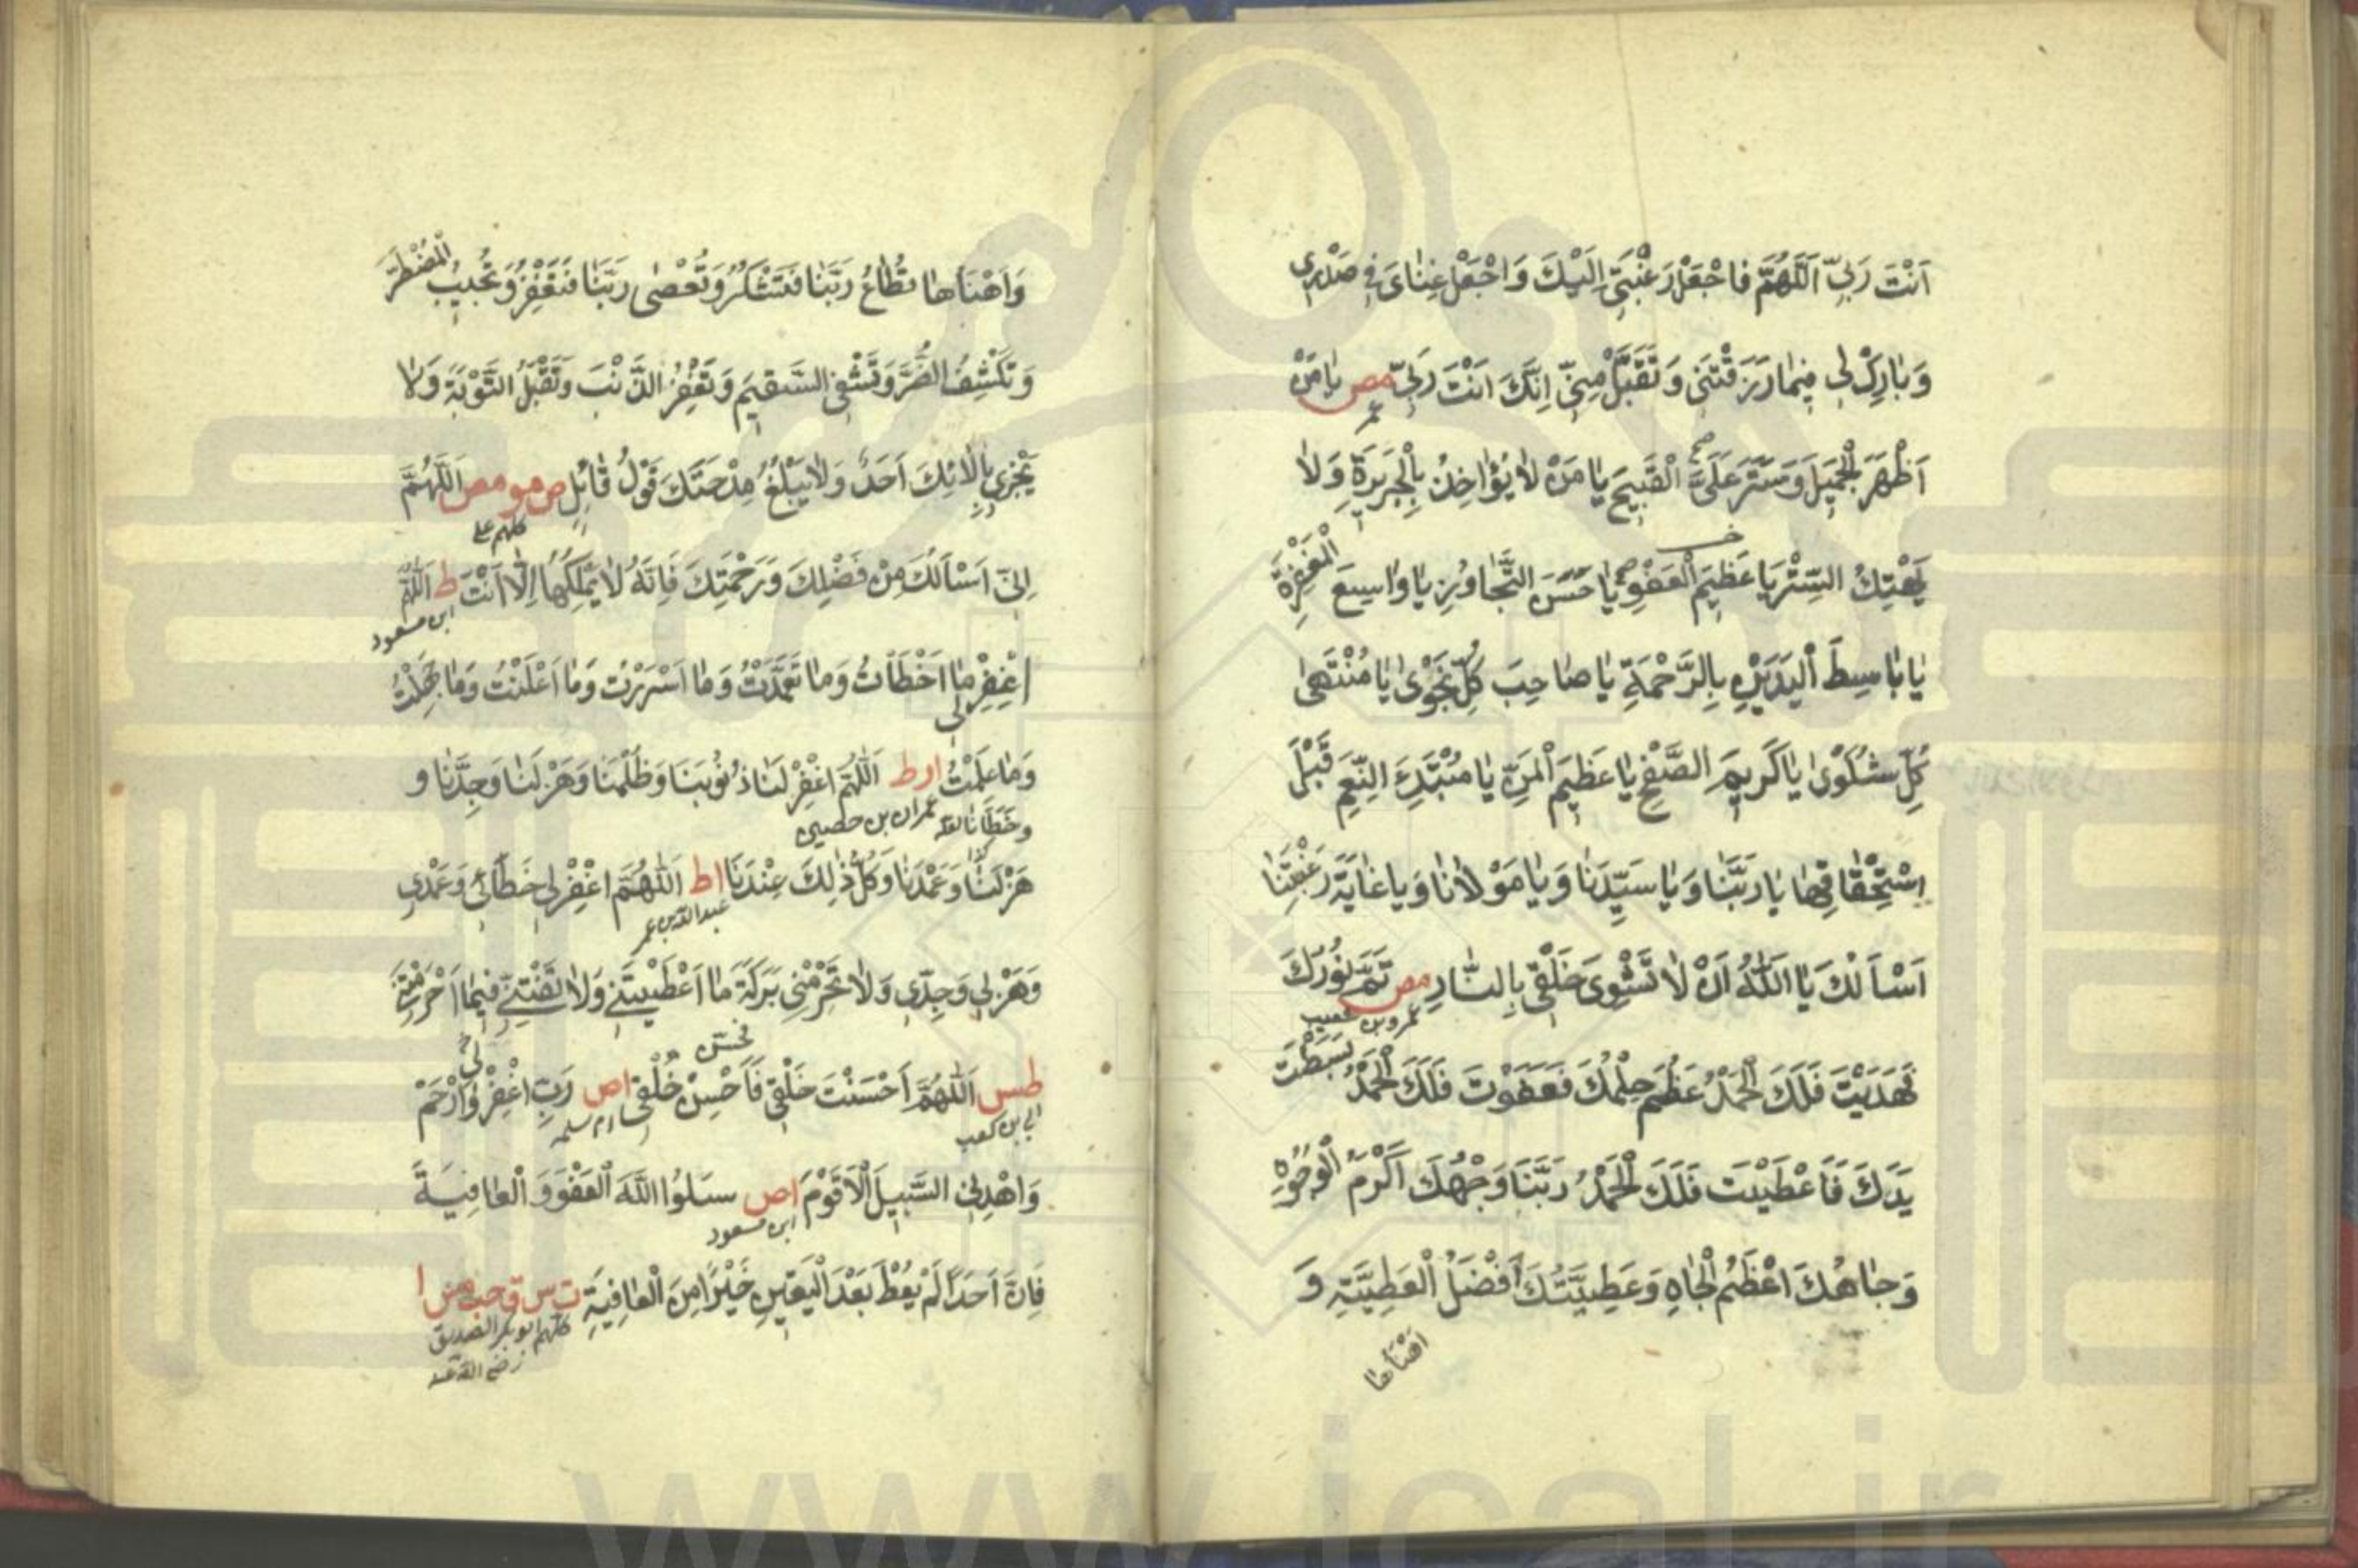 اَنْتَ رَبِّي اَللّٰهُمَّ فَاجْعَلْ رَغْبَتِي اِلَيْكَ وَاجْعَلْ غِنَايَ فِي صَدْرِي
وَبَارِكْ لِي فِيمَا رَزَقْتَنِي وَتَقَبَّلْ مِنِّي اِنَّكَ اَنْتَ رَبِّي مص يَا مَنْ
عمر
اَظْهَرَ الْجَمِيلَ وَسَتَرَ عَلَيَّ الْقَبِيحَ يَا مَنْ لَا يُؤَاخِذُ بِالْجَرِيرَةِ وَلَا
يَهْتِكُ السِّتْرَ يَا عَظِيمَ الْعَفْوِ يَا حَسَنَ التَّجَاوُزِ يَا وَاسِعَ الْمَغْفِرَةِ
يَا بَاسِطَ الْيَدَيْنِ بِالرَّحْمَةِ يَا صَاحِبَ كُلِّ نَجْوٰى يَا مُنْتَهٰى
كُلِّ شَكْوٰى يَا كَرِيمَ الصَّفْحِ يَا عَظِيمَ الْمَنِّ يَا مُبْتَدِئَ النِّعَمِ قَبْلَ
اِسْتِحْقَاقِهَا يَا رَبَّنَا وَيَا سَيِّدَنَا وَيَا مَوْلَانَا وَيَا غَايَةَ رَغْبَتِنَا
اَسْاَلُكَ يَا اَللّٰهُ اَنْ لَا تَشْوِيَ خَلْقِي بِالنَّارِ مص تَمَّ نُورُكَ
عمرو بن شعيب
فَهَدَيْتَ فَلَكَ الْحَمْدُ عَظُمَ حِلْمُكَ فَعَفَوْتَ فَلَكَ الْحَمْدُ بَسَطْتَ
يَدَكَ فَاَعْطَيْتَ فَلَكَ الْحَمْدُ رَبَّنَا وَجْهُكَ اَكْرَمُ الْوُجُوهِ
وَجَاهُكَ اَعْظَمُ الْجَاهِ وَعَطِيَّتُكَ اَفْضَلُ الْعَطِيَّةِ وَ
اَهْنَأُهَا
وَاَهْنَأُهَا تُطَاعُ رَبَّنَا فَتَشْكُرُ وَتُعْصٰى رَبَّنَا فَتَغْفِرُ وَتُجِيبُ الْمُضْطَرَّ
وَتَكْشِفُ الضُّرَّ وَتَشْفِي السَّقِيمَ وَتَغْفِرُ الذَّنْبَ وَتَقْبَلُ التَّوْبَةَ وَلَا
يَجْزِي بِاٰلَائِكَ اَحَدٌ وَلَا يَبْلُغُ مِدْحَتَكَ قَوْلُ قَائِلٍ ص مو مص اَللّٰهُمَّ
كلهم علي
اِنِّي اَسْاَلُكَ مِنْ فَضْلِكَ وَرَحْمَتِكَ فَاِنَّهُ لَا يَمْلِكُهَا اِلَّا اَنْتَ ط اَللّٰهُمَّ
ابن مسعود
اغْفِرْ لِي مَا اَخْطَأْتُ وَمَا تَعَمَّدْتُ وَمَا اَسْرَرْتُ وَمَا اَعْلَنْتُ وَمَا جَهِلْتُ
وَمَا عَلِمْتُ ا ر ط اَللّٰهُمَّ اغْفِرْ لَنَا ذُنُوبَنَا وَظُلْمَنَا وَهَزْلَنَا وَجِدَّنَا وَ
وَخَطَأَنَا عمران بن حصين
هَزْلَنَا وَعَمْدَنَا وَكُلُّ ذٰلِكَ عِنْدَنَا اط اَللّٰهُمَّ اغْفِرْ لِي خَطَائِي وَعَمْدِي
عبدالله بن عمر
وَهَزْلِي وَجِدِّي وَلَا تَحْرِمْنِي بَرَكَةَ مَا اَعْطَيْتَنِي وَلَا تَفْتِنِّي فِيمَا اَحْرَمْتَنِي
طس اَللّٰهُمَّ اَحْسَنْتَ خَلْقِي فَاَحْسِنْ خُلْقِي اص رَبِّ اغْفِرْ لِي وَارْحَمْ
ابي بن كعب ام سلمه
وَاهْدِنِي السَّبِيلَ الْاَقْوَمَ اص سَلُوا اللّٰهَ الْعَفْوَ وَالْعَافِيَةَ
ابن مسعود
فَاِنَّ اَحَدًا لَمْ يُعْطَ بَعْدَ الْيَقِينِ خَيْرًا مِنَ الْعَافِيَةِ ت س ق حب مس ا
كلهم ابو بكر الصديق
رضي الله عنه
www.ical.ir